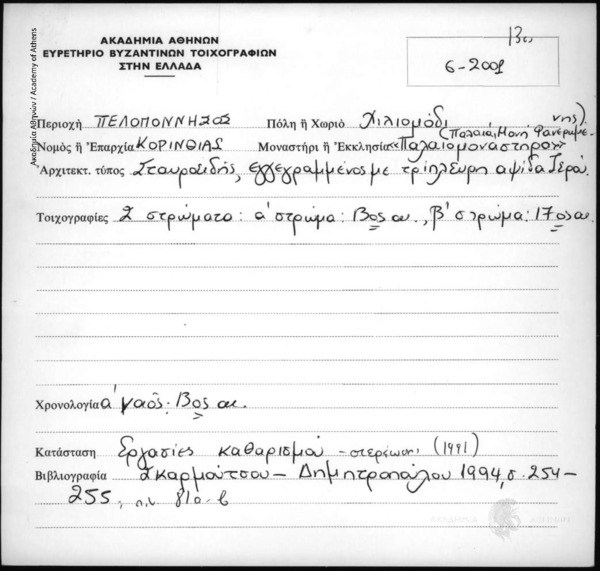 ΑΚΑΔΗΜΙΑ ΑΘΗΝΩΝ
ΕΥΡΕΤΗΡΙΟ ΒΥΖΑΝΤΙΝΩΝ ΤΟΙΧΟΓΡΑΦΙΩΝ
ΣΤΗΝ ΕΛΛΑΔΑ
13ος
6-2001
Ακαδημία Αθηνών / Academy of Athens
Περιοχή ΠΕΛΟΠΟΝΝΗΣΟΣ Πόλη ἤ Χωριό Χιλιομόδι
(Παλαιά Μονή Φανερωμένης)
Νομός ἤ Ἐπαρχία ΚΟΡΙΝΘΙΑΣ Μοναστήρι ἤ Ἐκκλησία «Παλαιομονάστηρο»
Ἀρχιτεκτ. τύπος Σταυροειδής, εγγεγραμμένος με τρίπλευρη αψίδα Ιερού.
Τοιχογραφίες 2 στρώματα: α' στρώμα: 13ος αι., β' στρώμα: 17ος αι.
Χρονολογία α' ναός: 13ος αι.
Κατάσταση Εργασίες καθαρισμού - στερέωση (1991)
Βιβλιογραφία Σκαρμούτσου - Δημητροπούλου 1994, σ. 254-
255, πιν. 81α-β